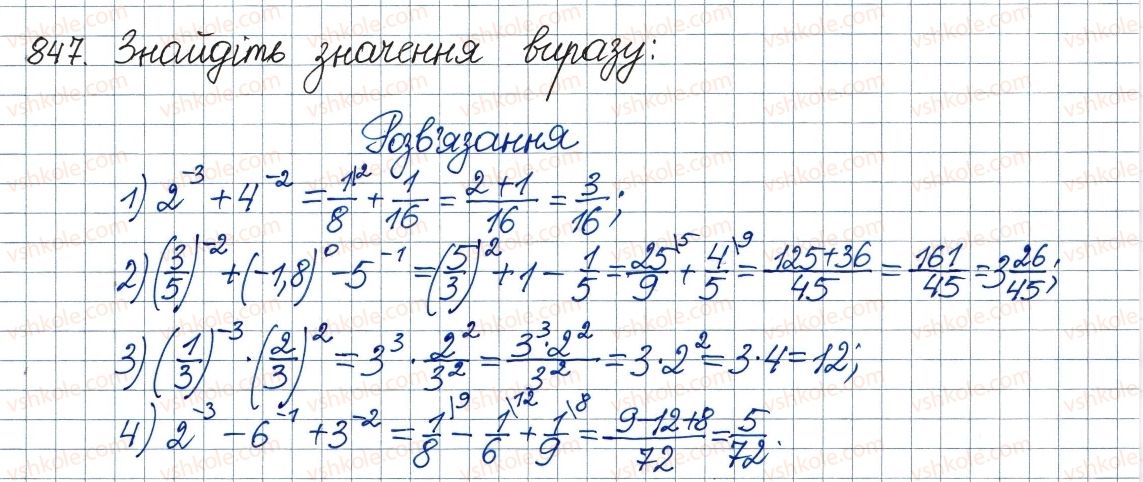 847. Знайдіть значення виразу:
Розв'язання
1) 2^{-3} + 4^{-2} = \frac{1}{8}^{\backslash 2} + \frac{1}{16} = \frac{2+1}{16} = \frac{3}{16};
2) (\frac{3}{5})^{-2} + (-1,8)^0 - 5^{-1} = (\frac{5}{3})^2 + 1 - \frac{1}{5} = \frac{25}{9}^{\backslash 5} + \frac{4}{5}^{\backslash 9} = \frac{125+36}{45} = \frac{161}{45} = 3\frac{26}{45};
3) (\frac{1}{3})^{-3} · (\frac{2}{3})^2 = 3^3 · \frac{2^2}{3^2} = \frac{3^3 · 2^2}{3^2} = 3 · 2^2 = 3 · 4 = 12;
4) 2^{-3} - 6^{-1} + 3^{-2} = \frac{1}{8}^{\backslash 9} - \frac{1}{6}^{\backslash 12} + \frac{1}{9}^{\backslash 8} = \frac{9-12+8}{72} = \frac{5}{72}.
vshkole.com